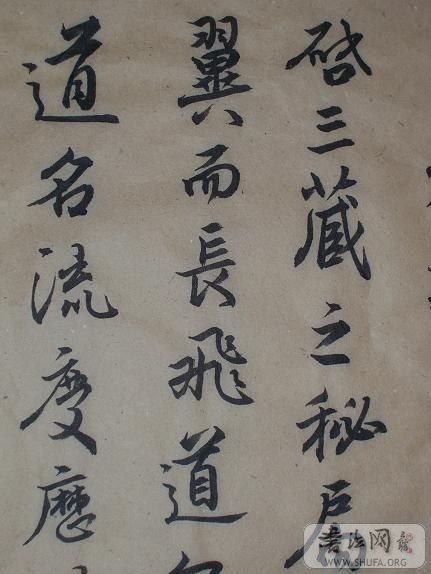 啓三藏之秘扃
翼而長飛道
道名流慶歷
書法网
WWW.SHUFA.ORG